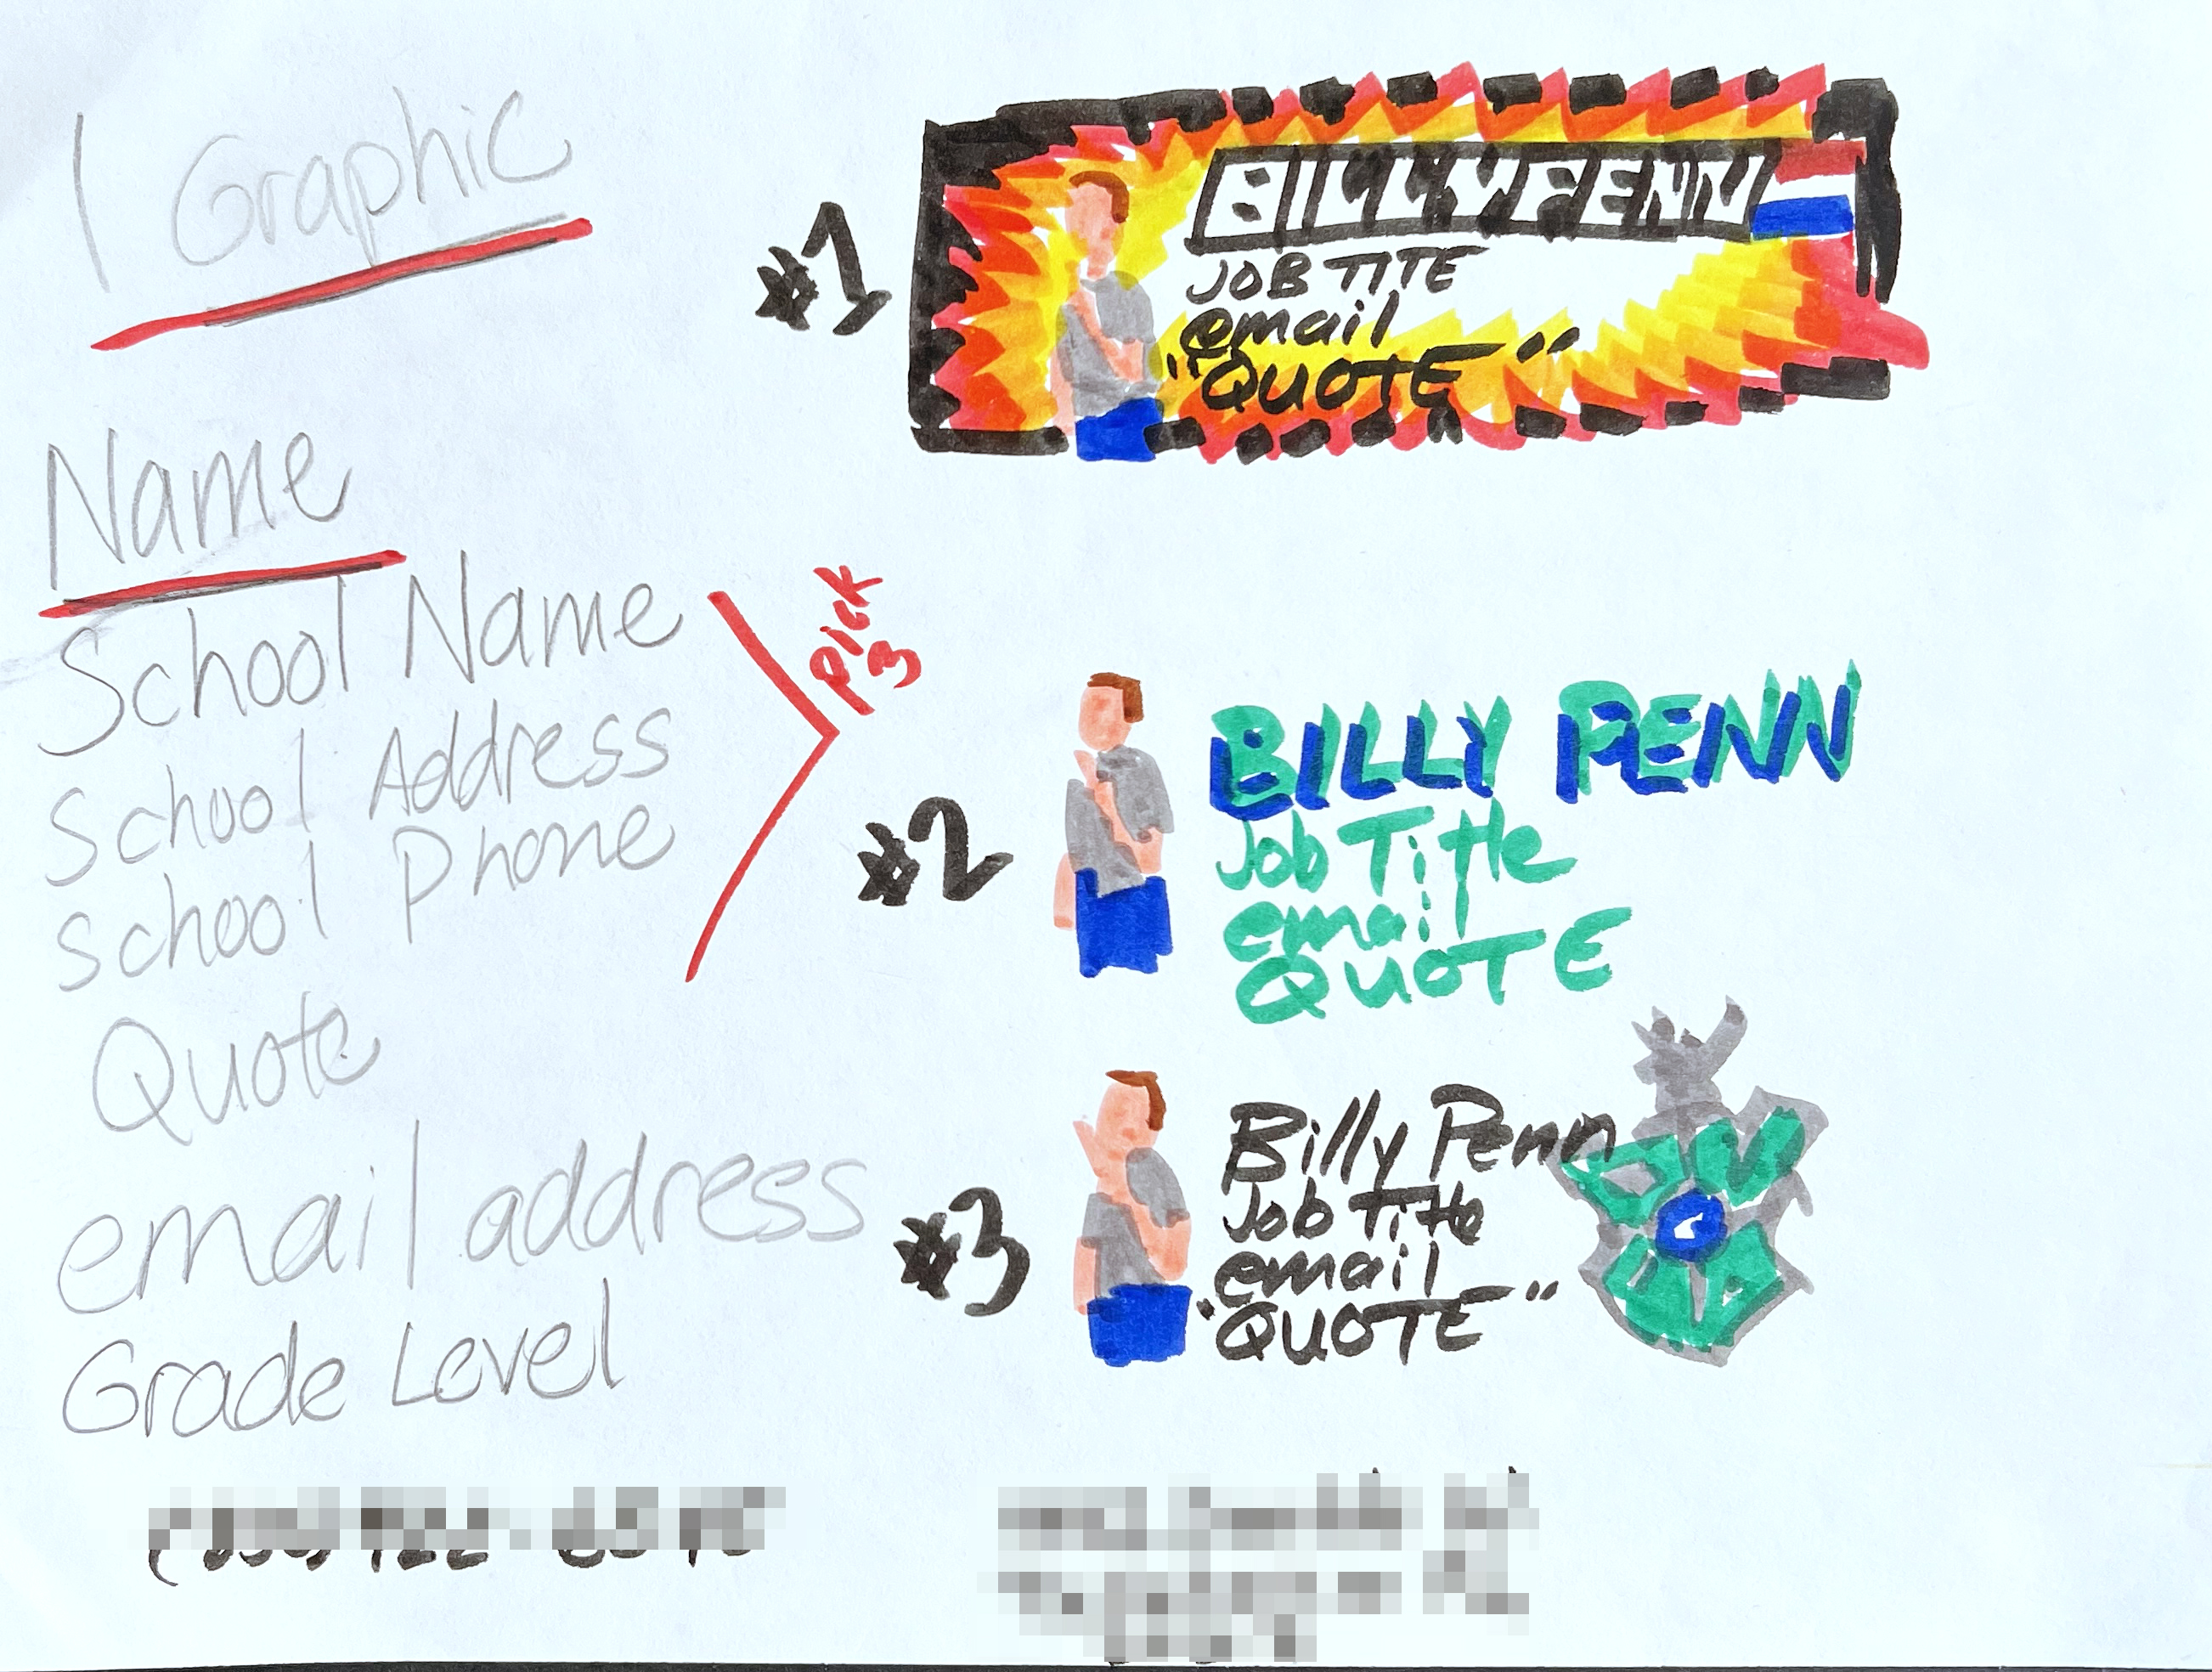 1 Graphic
Name
School Name
School Address
School Phone
Quote
email address
Grade Level
Pick
3
#1
BILLY PENN
JOB TITE
email
"QUOTE"
#2
BILLY PENN
Job Title
email
QUOTE
#3
Billy Penn
Job Title
email
"QUOTE"